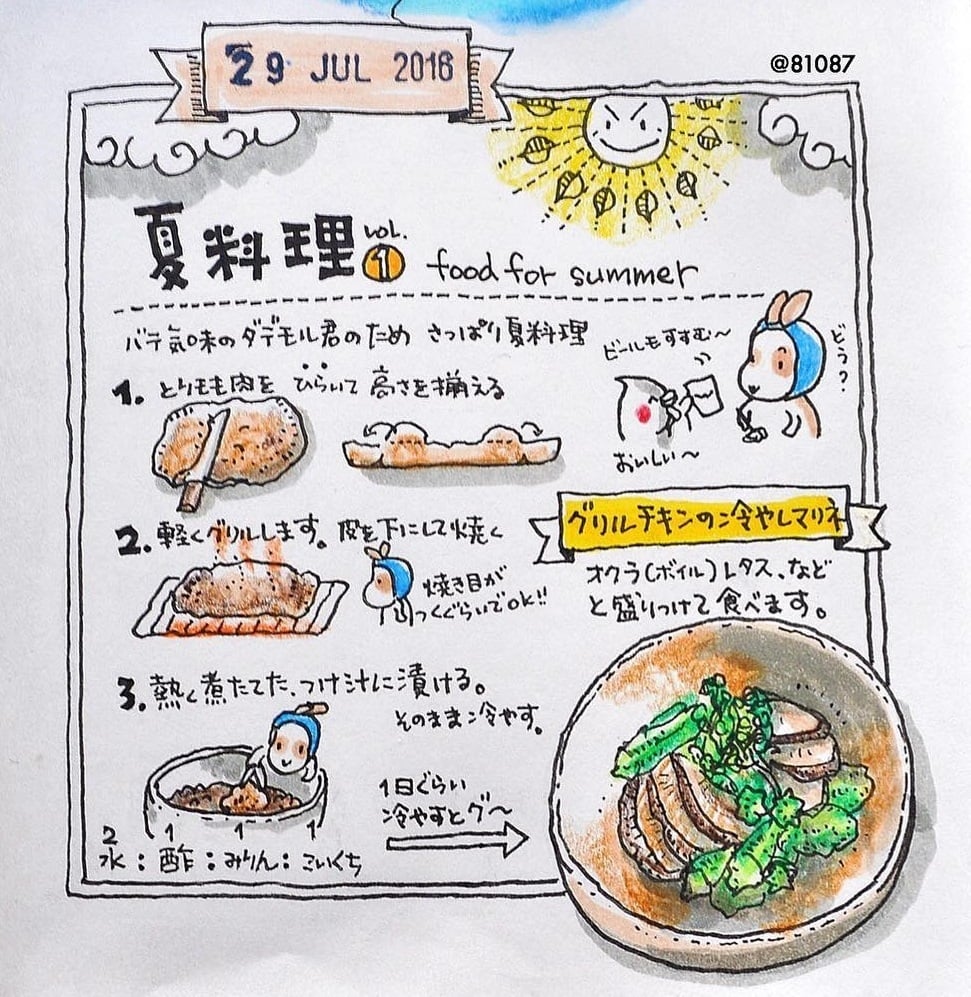 29 JUL 2016
@81087
夏料理 VOL. 1 food for summer
バテ気味のダデモル君のため さっぱり夏料理
ビールもすすむ〜
どう?
おいしい〜
1. とりモモ肉を ひらいて 高さを揃える
2. 軽くグリルします。 皮を下にして焼く
焼き目が
つくぐらいでOK!!
3. 熱く煮たてた、つけ汁に漬ける。
そのまま冷やす。
2 1 1 1
水:酢:みりん:こいくち
1日ぐらい
冷やすとグ〜
グリルチキンの冷やしマリネ
オクラ(ボイル)レタス、など
と盛りつけて食べます。